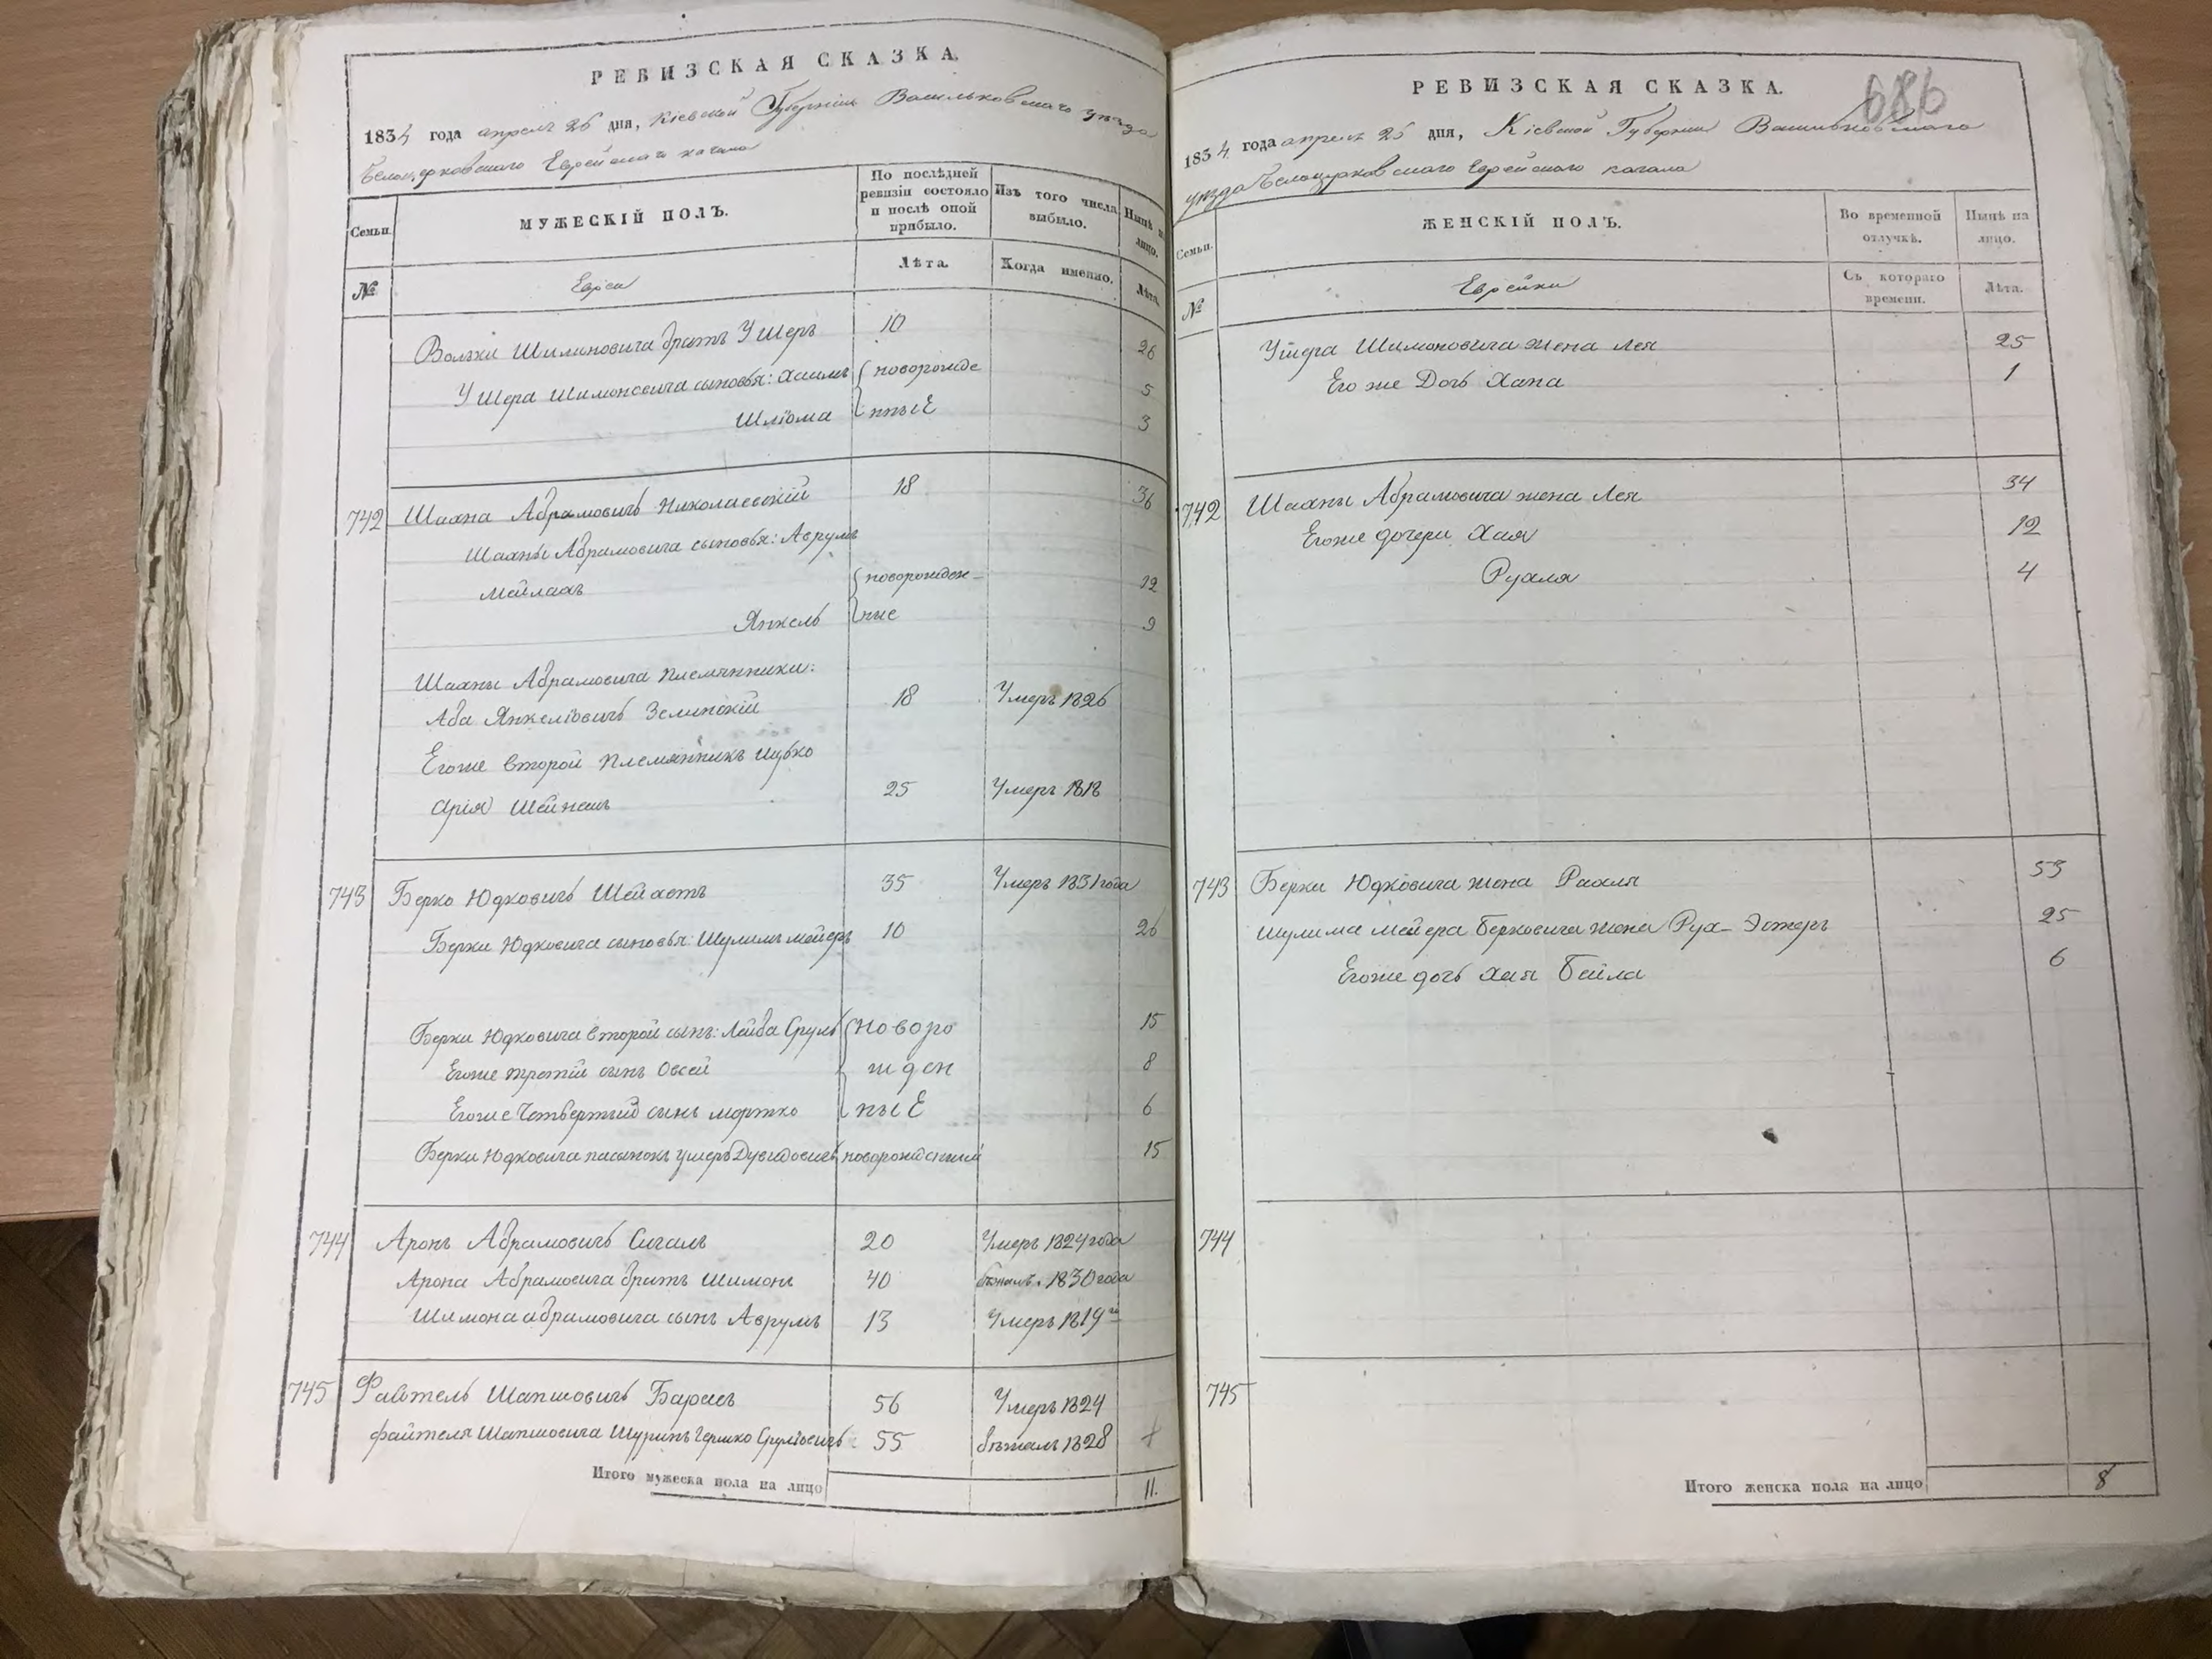 РЕВИЗСКАЯ СКАЗКА.
1834 года апреля 25 дня, Кіевской Губерніи Васильковскаго уезда
Белоцерковскаго Еврейскаго кагала
Семьи.
МУЖЕСКІЙ ПОЛЪ.
По послѣдней ревизіи состояло и послѣ оной прибыло.
Изъ того числа выбыло.
Нынѣ на лицо.
№
Евреи
Лѣта.
Когда именно.
Лѣта.
Волъки Шимоновича братъ Ушеръ 10 26
Ушера Шимоновича сыновья: Хаимъ новорожде 5
Шліома нные 3
742 Шахна Абрамовичъ Николаевскій 18 36
Шахны Абрамовича сыновья: Аврумъ
Мейлахъ новорожден- 12
Янкель ные 9
Шахны Абрамовича племянники:
Аба Янкеліовичъ Зелинскій 18 Умеръ 1826
Егоже второй племянникъ Ицько
Арія Шейнешъ 25 Умеръ 1818
743 Берко Юдковичъ Шейхетъ 35 Умеръ 1831 года
Берки Юдковича сыновья: Шулимъ Мейеръ 10 26
Берки Юдковича второй сынъ: Лейба Сруль новоро 15
Егоже третій сынъ Овсей жден 8
Егоже Четвертый сынъ Мортко ные 6
Берки Юдковича пасынокъ Ушеръ Дувидовичъ новорожденный 15
744 Аронъ Абрамовичъ Сигалъ 20 Умеръ 1824 года
Арона Абрамовича братъ Шимонъ 40 бежалъ. 1830 года
Шимона Абрамовича сынъ Аврумъ 13 Умеръ 1819 го
745 Файтель Шапшовичъ Барасъ 56 Умеръ 1824
Файтеля Шапшовича Шуринъ Гершко Сруліовичъ 55 бежалъ 1828
Итого мужеска пола на лицо 11.
686
РЕВИЗСКАЯ СКАЗКА.
1834 года апреля 25 дня, Кіевской Губерніи Васильковскаго
уезда Белоцерковскаго Еврейскаго кагала
Семьи.
ЖЕНСКІЙ ПОЛЪ.
Во временной отлучкѣ.
Нынѣ на лицо.
№
Еврейки
Съ котораго времени.
Лѣта.
Ушера Шимоновича жена Лея 25
Его же Дочь Хана 1
742 Шахны Абрамовича жена Лея 34
Егоже дочери Хая 12
Рухля 4
743 Берки Юдковича жена Рахля 53
Шулима Мейера Берковича жена Рух-Эстеръ 25
Егоже дочь Хая Бейла 6
744
745
Итого женска пола на лицо 8